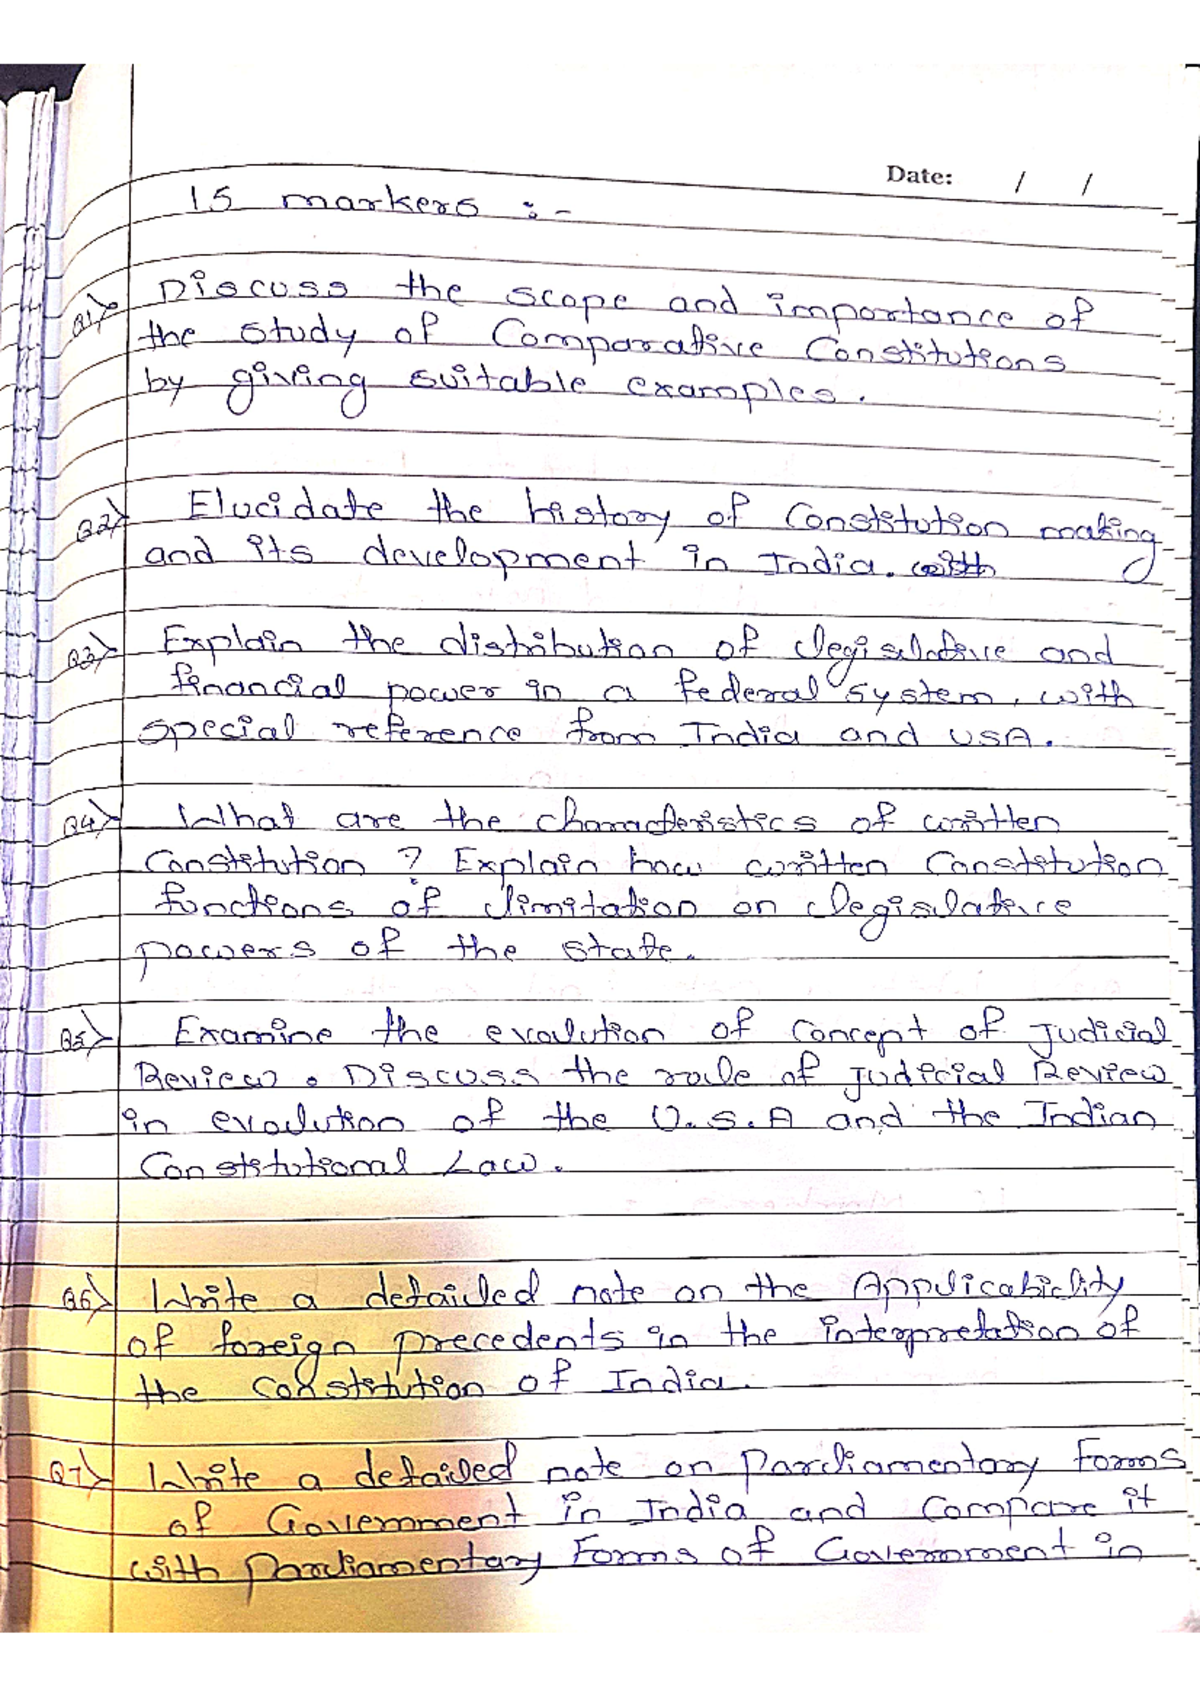 Date: / /
15 markers :-
Q1) Discuss the scope and importance of
the study of Comparative Constitutions
by giving suitable examples.
Q2) Elucidate the history of Constitution making
and its development in India. with
Q3) Explain the distribution of legislative and
financial power in a federal system, with
special reference from India and USA.
Q4) What are the characteristics of written
Constitution ? Explain how written Constitution
functions of limitation on legislative
powers of the state.
Q5) Examine the evolution of concept of Judicial
Review. Discuss the role of Judicial Review
in evolution of the U.S.A and the Indian
Constitutional Law.
Q6) Write a detailed note on the Applicability
of foreign precedents in the interpretation of
the Constitution of India.
Q7) Write a detailed note on Parliamentory Forms
of Government in India and compare it
with Parliamentary Forms of Government in